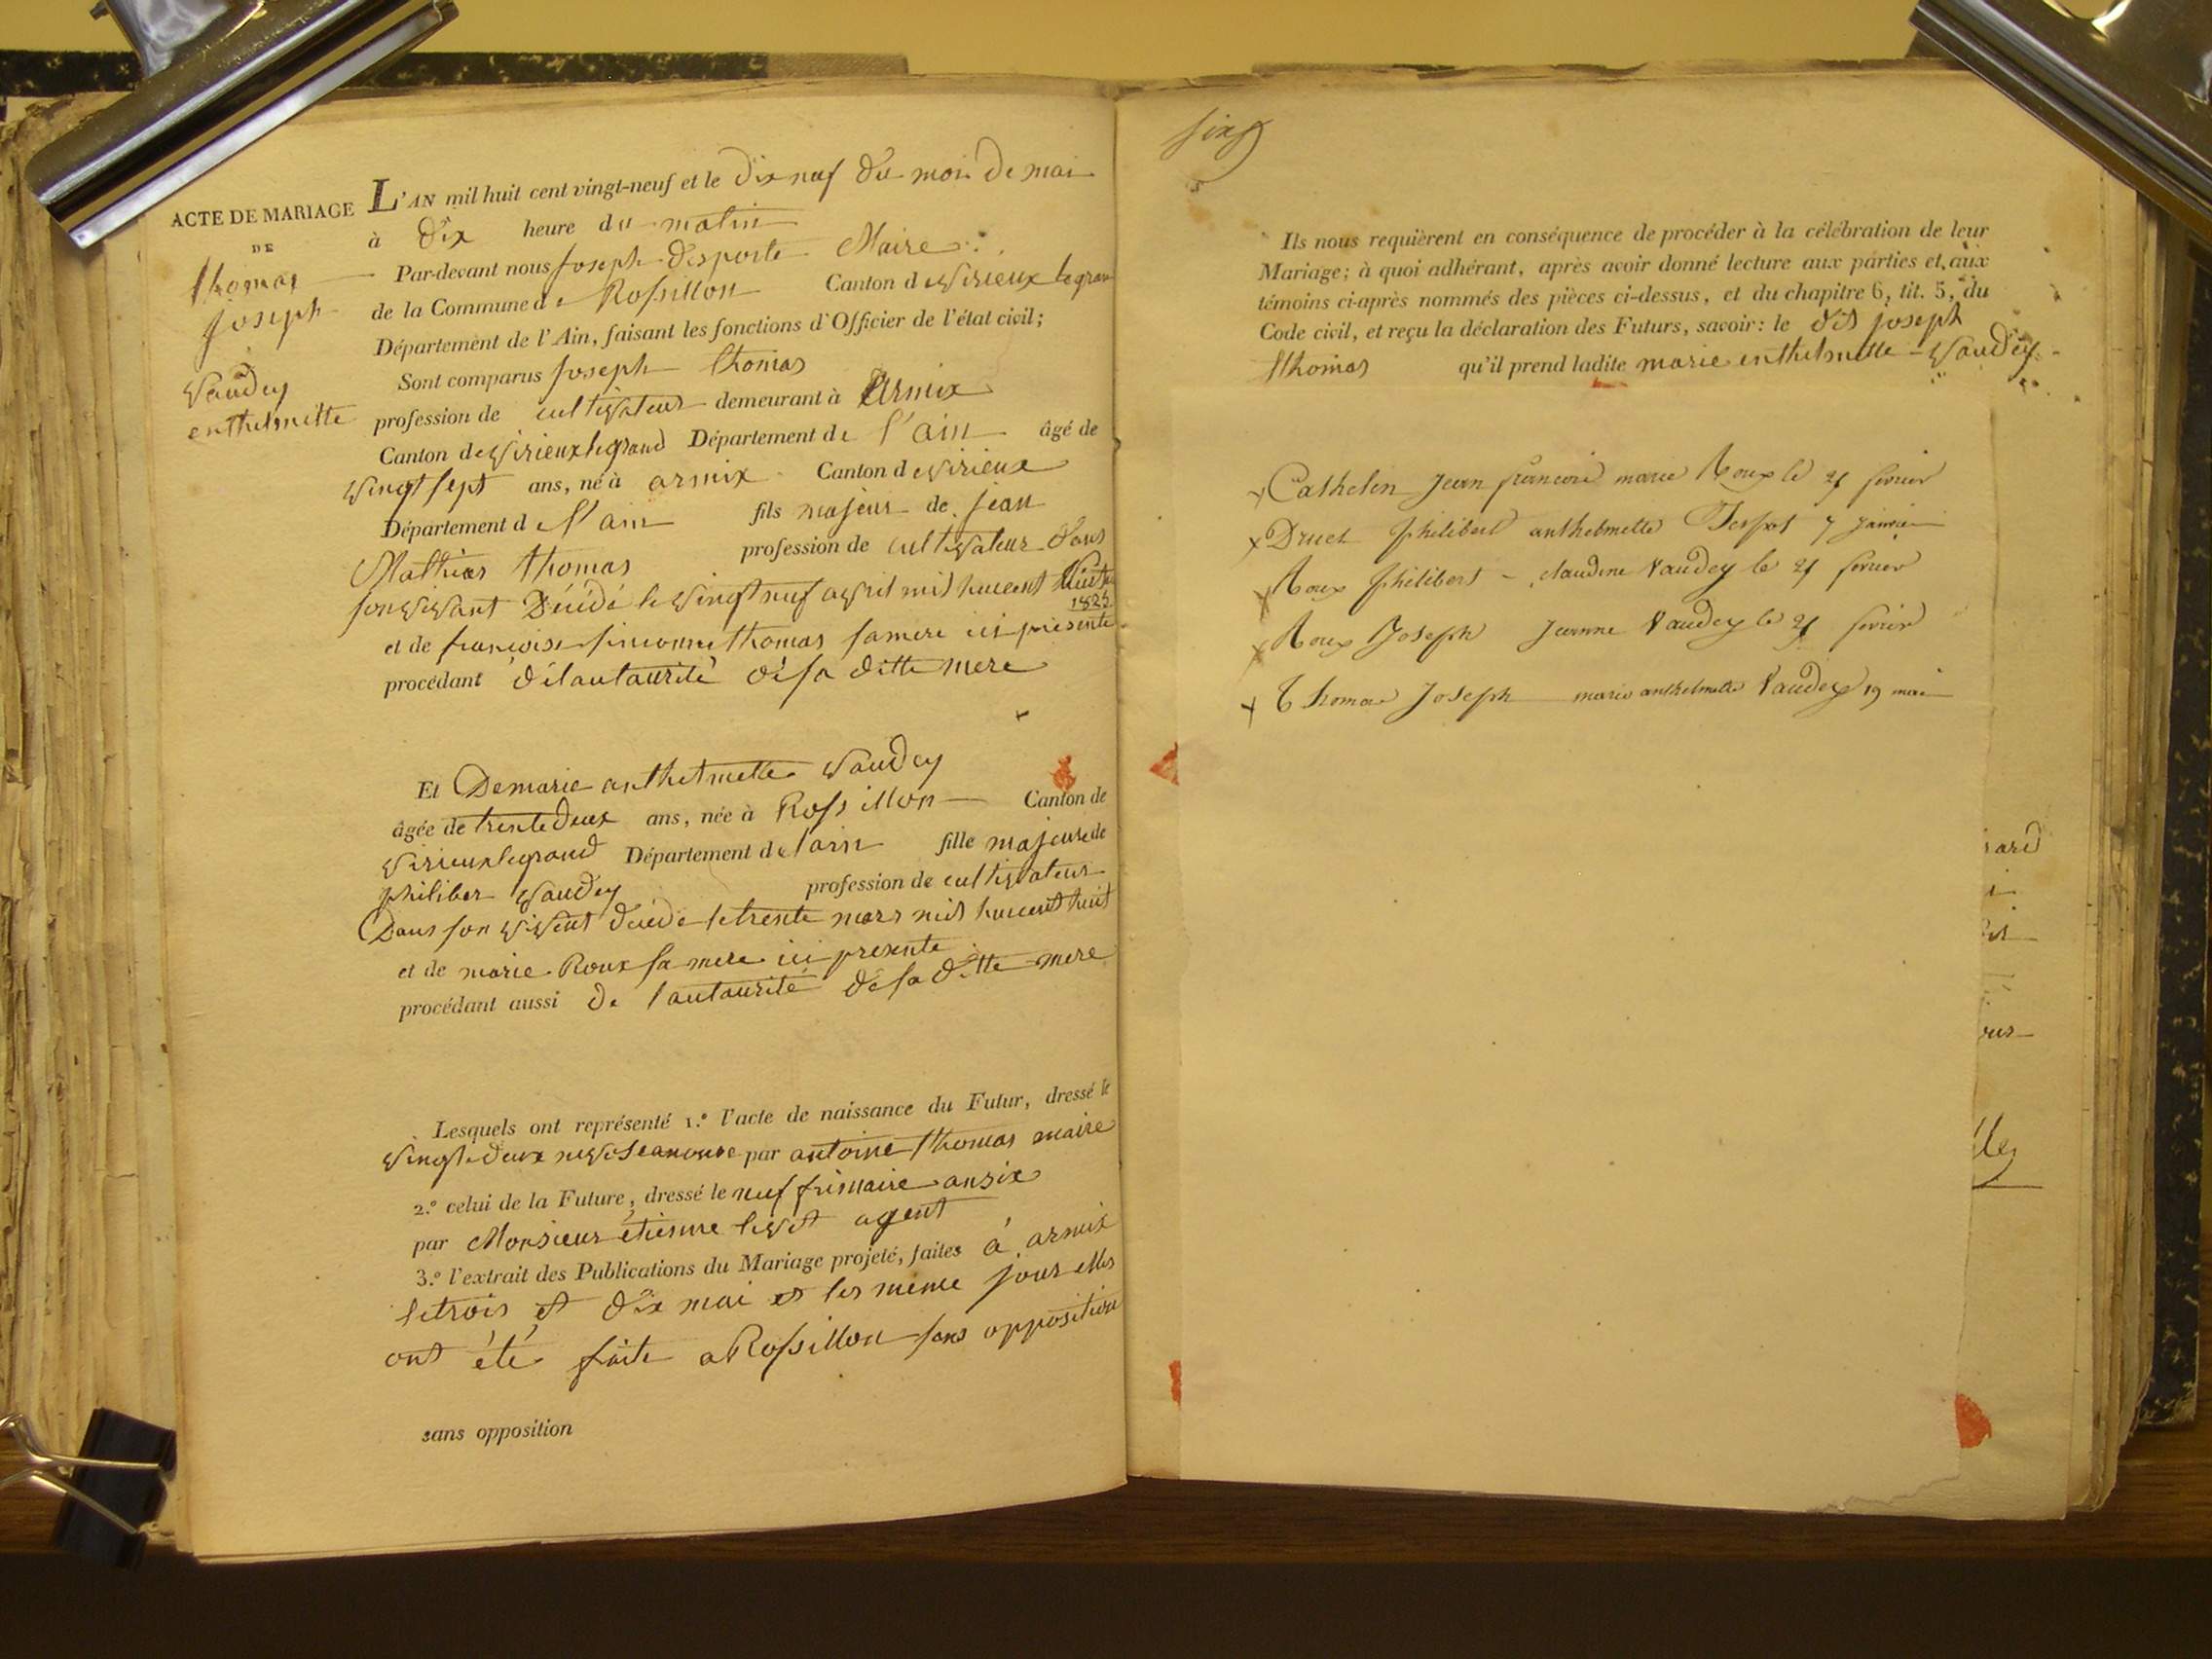 ACTE DE MARIAGE
DE
thomas
joseph
vaudey
enthelmette
L'AN mil huit cent vingt-neuf et le dix neuf du mois de mai
à dix heure du matin
Par-devant nous joseph desporte Maire
de la Commune de Rossillon Canton de virieux le gran
Département de l'Ain, faisant les fonctions d'Officier de l'état civil;
Sont comparus joseph thomas
profession de cultivateur demeurant à Armix
Canton de virieux legrand Département de l'ain âgé de
vingt sept ans, né à armix Canton de virieux
Département de l'ain fils majeur de jean
Mathieu thomas profession de cultivateur dans
son vivant Décédé le vingt neuf avril mil huicent
et de francoise thomas sa mere ici présente
procédant dé lautaurité dé sa ditte mere
Et Demarie anthelmette vaudey
âgée de trente deux ans, née à Rossillon Canton de
virieux legrand Département de lain fille majeure de
philiber vaudey profession de cultivateur
Dans son vivent décédé le trente mars mil huicent huit
et de marie Roux sa mere ici presente
procédant aussi de lautaurité dé sa ditte mere
Lesquels ont représenté 1.° l'acte de naissance du Futur, dressé le
vingt deux nivose an onze par antoine thomas maire
2.° celui de la Future, dressé le neuf frimaire an six
par Monsieur étienne livet agent
3.° l'extrait des Publications du Mariage projeté, faites à armix
le trois et dix mai et les meme jour elles
ont été faite a Rossillon sans opposition
sans opposition
six
Ils nous requièrent en conséquence de procéder à la célébration de leur
Mariage; à quoi adhérant, après avoir donné lecture aux parties et aux
témoins ci-après nommés des pièces ci-dessus, et du chapitre 6, tit. 5, du
Code civil, et reçu la déclaration des Futurs, savoir: le dit joseph
thomas qu'il prend ladite marie enthelmette vaudey
x Cathelin Jean francois marie Roux le 21 fevrier
x Druet philibert anthelmette 7 janvier
x Roux philibert - claudine Vaudey le 21 fevrier
x Roux Joseph Jeanne Vaudey le 21 fevrier
x Thomas Joseph marie anthelmette Vaudey 19 mai